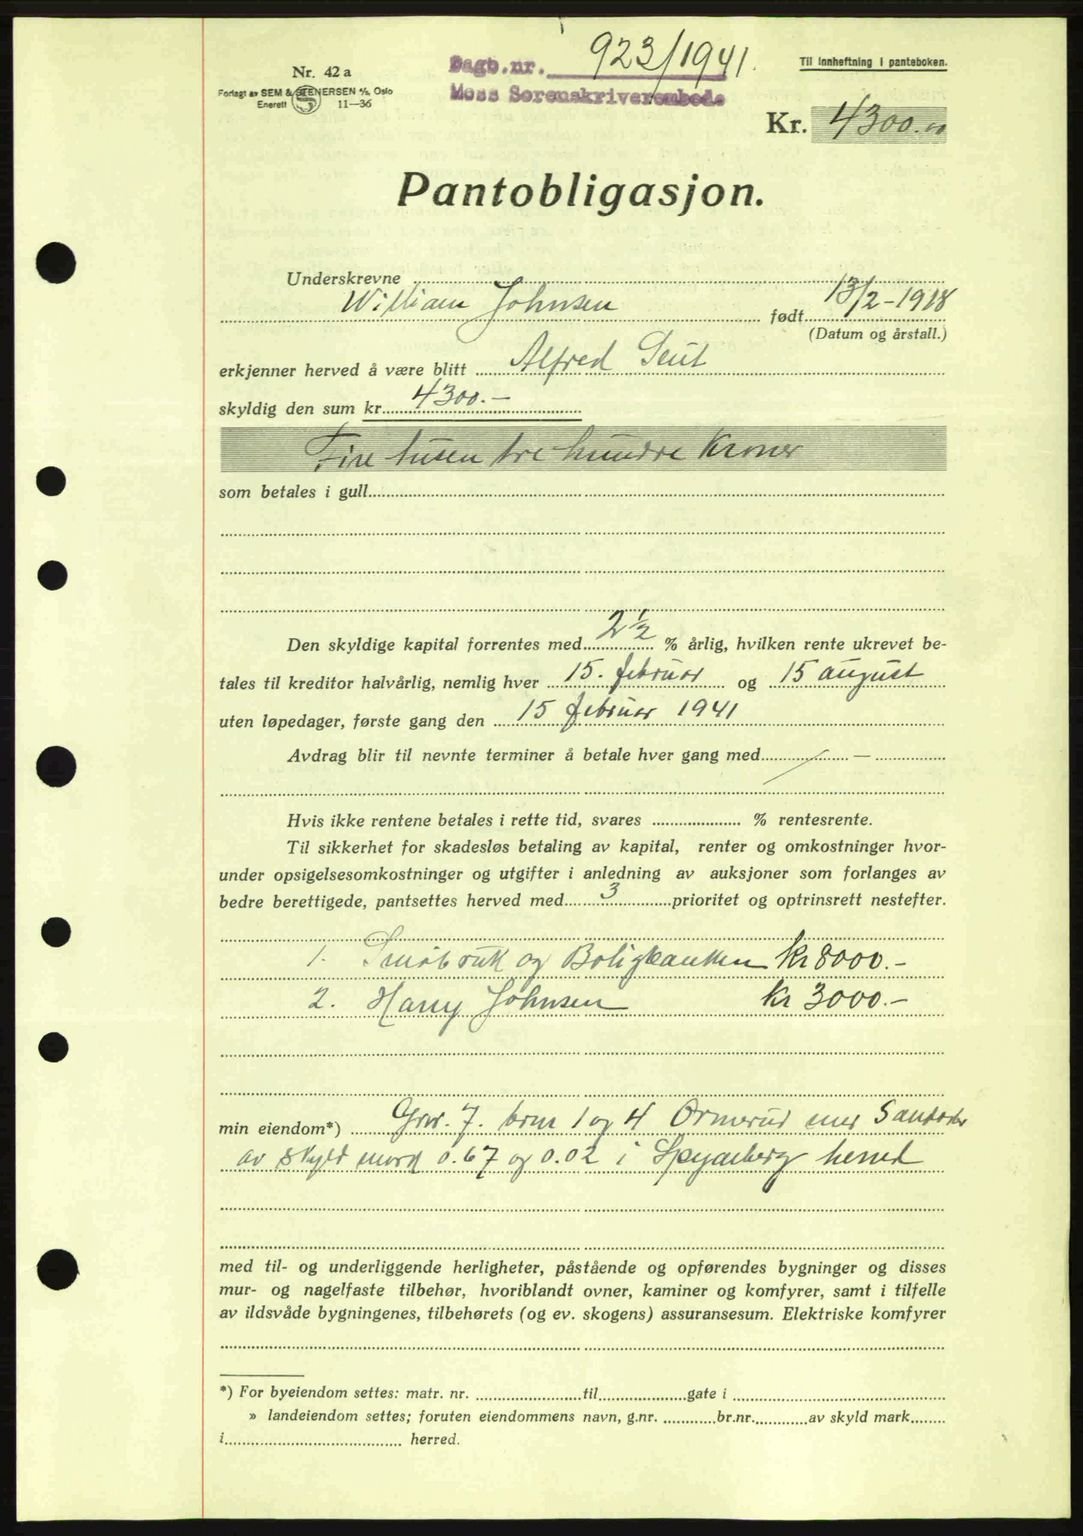 Nr. 42 a
Forlagt av SEM & STENERSEN A/S, Oslo
Enerett 11—36
Dagb.nr. 923/1941.
Moss Sorenskriverembede
Til innheftning i panteboken.
Kr. 4300.00
Pantobligasjon.
Underskrevne
William Johnsen født 13/2-1918
(Datum og årstall.)
erkjenner herved å være blitt Alfred
skyldig den sum kr. 4300.-
Fire tusen tre hundre Kroner
som betales i gull
Den skyldige kapital forrentes med 2 1/2 % årlig, hvilken rente ukrevet be-
tales til kreditor halvårlig, nemlig hver 15. februar og 15 august
uten løpedager, første gang den 15 februar 1941
Avdrag blir til nevnte terminer å betale hver gang med — —
Hvis ikke rentene betales i rette tid, svares % rentesrente.
Til sikkerhet for skadesløs betaling av kapital, renter og omkostninger hvor-
under opsigelsesomkostninger og utgifter i anledning av auksjoner som forlanges av
bedre berettigede, pantsettes herved med 3 prioritet og optrinsrett nestefter.
1. Småbruk og Boligbanken kr 8000.-
2. Harry Johnsen kr 3000.-
min eiendom*) Gnr. 7. brnr 1 og 4 Ormerud
av skyld mark 0.67 og 0.02 i herred
med til- og underliggende herligheter, påstående og opførendes bygninger og disses
mur- og nagelfaste tilbehør, hvoriblandt ovner, kaminer og komfyrer, samt i tilfelle
av ildsvåde bygningenes, tilbehørets (og ev. skogens) assuransesum. Elektriske komfyrer
*) For byeiendom settes: matr. nr. til gate i
» landeiendom settes; foruten eiendommens navn, g.nr. br.nr. av skyld mark
i herred.